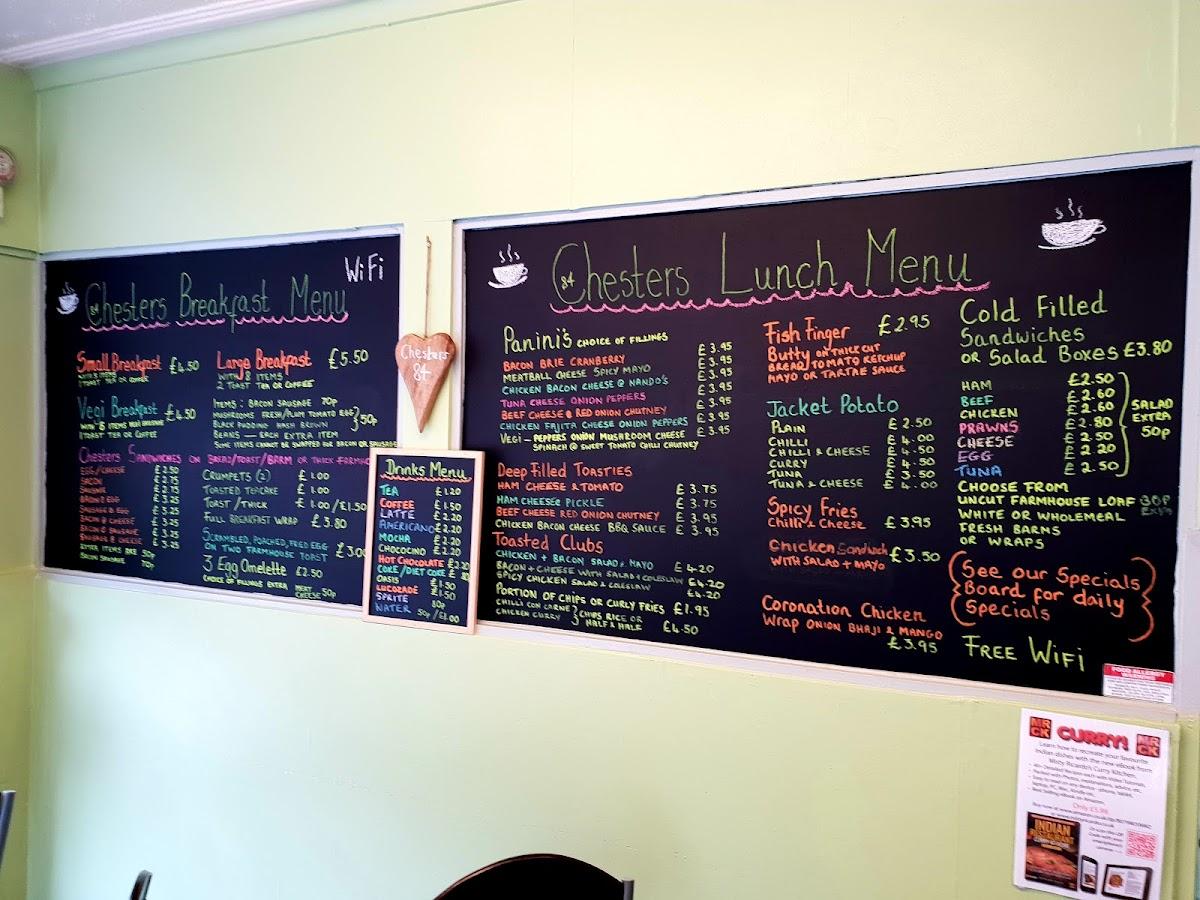 WiFi
84 Chesters Breakfast Menu
Small Breakfast £4.50
1 TOAST TEA OR COFFEE
Large Breakfast £5.50
WITH 8 ITEMS
2 TOAST TEA OR COFFEE
Vegi Breakfast £4.50
1 TOAST TEA OR COFFEE
ITEMS: BACON SAUSAGE 70p
MUSHROOMS FRESH/PLUM TOMATO EGG
BLACK PUDDING HASH BROWN } 50p
BEANS — EACH EXTRA ITEM
SOME ITEMS CANNOT BE SWAPPED FOR BACON OR SAUSAGE
Chesters SANDWICHES ON BREAD/TOAST/BARM OR THICK FARMHO
EGG/CHEESE £2.50
BACON £2.75
SAUSAGE £2.75
BACON & EGG £3.25
SAUSAGE & EGG £3.25
BACON & CHEESE £3.25
BACON & SAUSAGE £3.25
SAUSAGE & CHEESE £3.25
EXTRA ITEMS ARE 50p
BACON SAUSAGE 70p
CRUMPETS (2) £1.00
TOASTED TEACAKE £1.00
TOAST/THICK £1.00/£1.50
FULL BREAKFAST WRAP £3.80
SCRAMBLED, POACHED, FRIED EGG
ON TWO FARMHOUSE TOAST £3.00
3 Egg Omelette £2.50
CHOICE OF FILLINGS EXTRA MEAT CHEESE 50p
Chesters
84
Drinks Menu
TEA £1.20
COFFEE £1.50
LATTE £2.20
AMERICANO £2.20
MOCHA £2.20
CHOCOCINO £2.20
HOT CHOCOLATE £2.20
COKE/DIET COKE £
OASIS £1.50
LUCOZADE £1.50
SPRITE 80p
WATER 50p/£1.00
84 Chesters Lunch Menu
Panini's CHOICE OF FILLINGS
BACON BRIE CRANBERRY £3.95
MEATBALL CHEESE SPICY MAYO £3.95
CHICKEN BACON CHEESE @ NANDO'S £3.95
TUNA CHEESE ONION PEPPERS £3.95
BEEF CHEESE @ RED ONION CHUTNEY £3.95
CHICKEN FAJITA CHEESE ONION PEPPERS £3.95
VEGI – PEPPERS ONION MUSHROOM CHEESE £3.95
SPINACH @ SWEET TOMATO CHILLI CHUTNEY
Deep Filled Toasties
HAM CHEESE & TOMATO £3.75
HAM CHEESE & PICKLE £3.75
BEEF CHEESE RED ONION CHUTNEY £3.95
CHICKEN BACON CHEESE BBQ SAUCE £3.95
Toasted Clubs
CHICKEN + BACON SALAD + MAYO £4.20
BACON + CHEESE WITH SALAD + COLESLAW £4.20
SPICY CHICKEN SALAD & COLESLAW £4.20
PORTION OF CHIPS OR CURLY FRIES £1.95
CHILLI CON CARNE } CHIPS RICE OR
CHICKEN CURRY HALF & HALF £4.50
Fish Finger £2.95
Butty ON THICK CUT
BREAD TOMATO KETCHUP
MAYO OR TARTAR SAUCE
Jacket Potato
PLAIN £2.50
CHILLI £4.00
CHILLI & CHEESE £4.50
CURRY £4.50
TUNA £3.50
TUNA & CHEESE £4.00
Spicy Fries
Chilli & Cheese £3.95
Chicken Sandwich
WITH SALAD + MAYO £3.50
Coronation Chicken
Wrap ONION BHAJI & MANGO
£3.95
Cold Filled
Sandwiches
OR Salad Boxes £3.80
HAM £2.50
BEEF £2.60
CHICKEN £2.60
PRAWNS £2.80
CHEESE £2.50
EGG £2.20
TUNA £2.50
SALAD
EXTRA
50p
CHOOSE FROM
UNCUT FARMHOUSE LOAF 30P
WHITE OR WHOLEMEAL EXTRA
FRESH BARMS
OR WRAPS
(See our Specials
Board for daily
Specials)
FREE WIFI
FOOD ALLERGY
MR CK CURRY! MR CK
Learn how to recreate your favourite
Indian dishes with the new eBook from
Misty Ricardo's Curry Kitchen.
Only £3.99
INDIAN
RESTAURANT